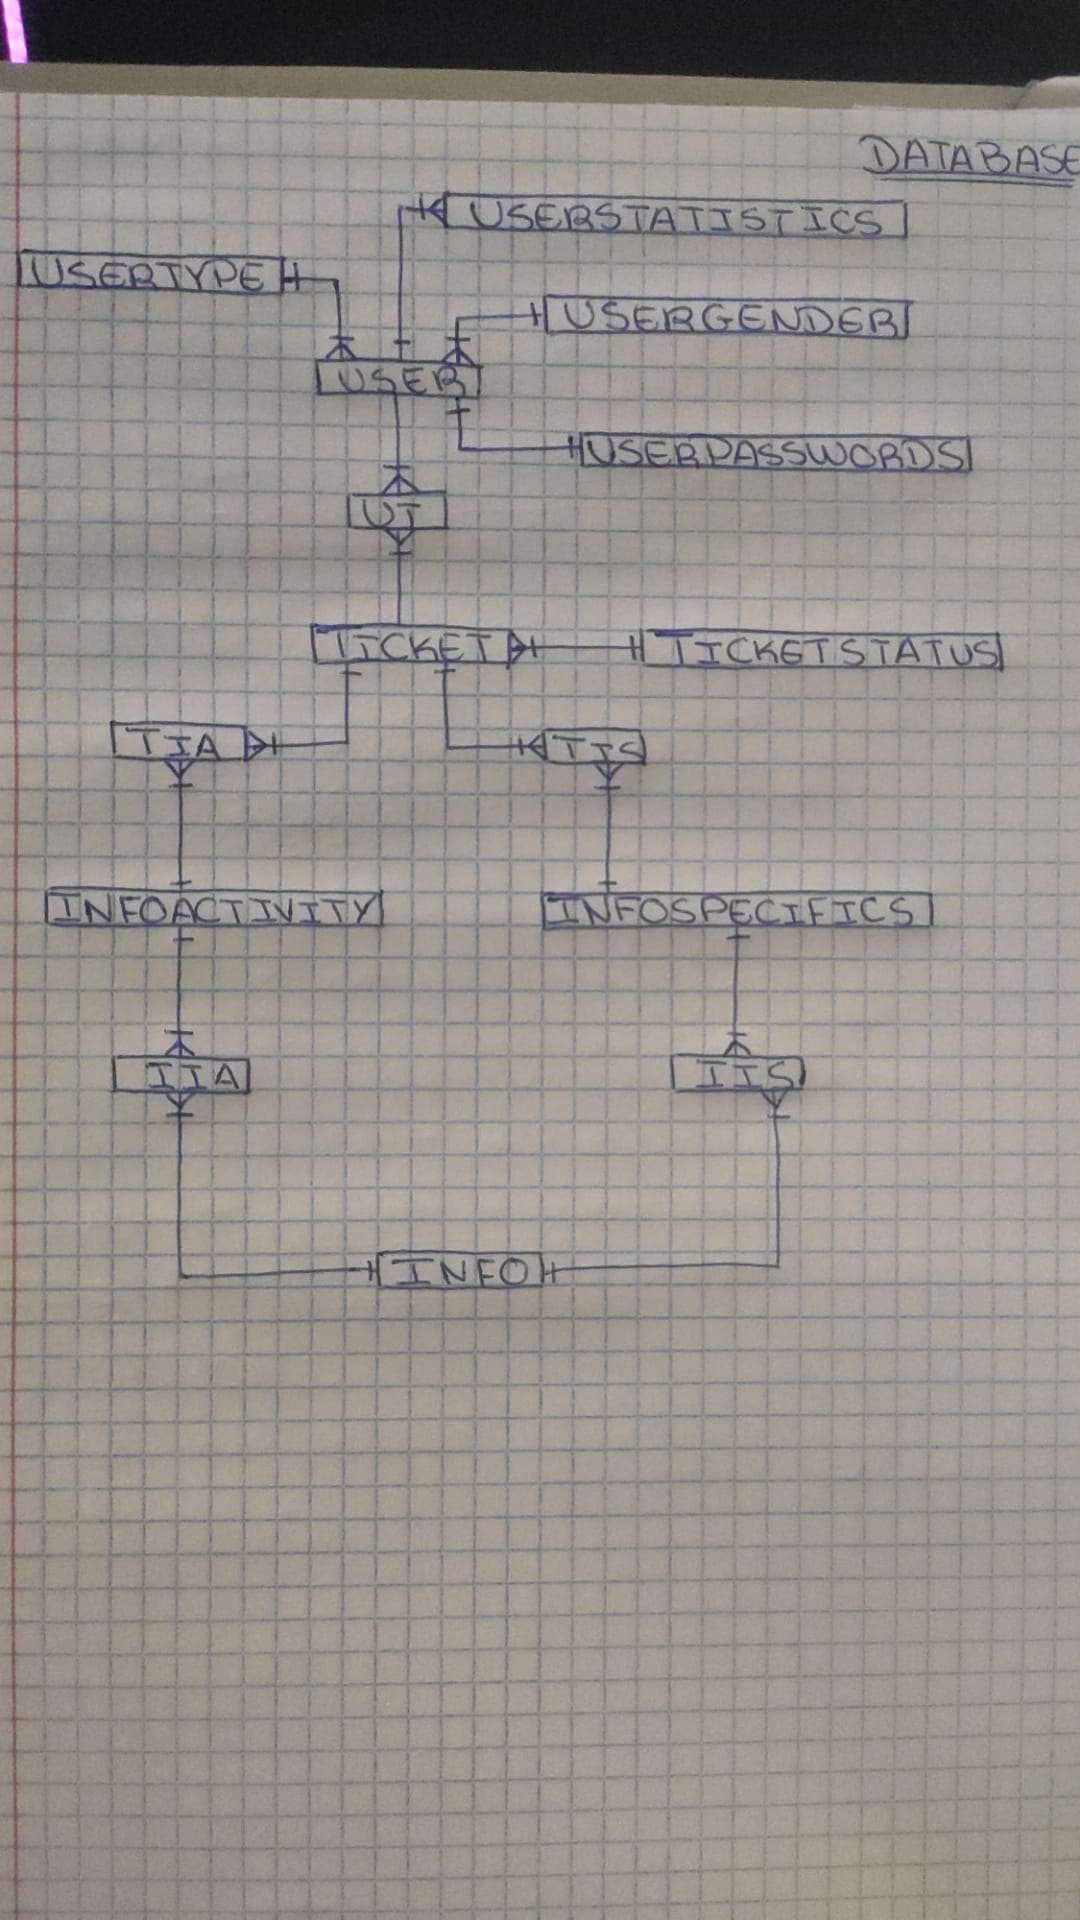 DATABASE
USERSTATISTICS
USERTYPE
USERGENDER
USER
USERPASSWORDS
UT
TICKET
TICKETSTATUS
TIA
TIS
INFOACTIVITY
INFOSPECIFICS
IIA
IIS
INFO